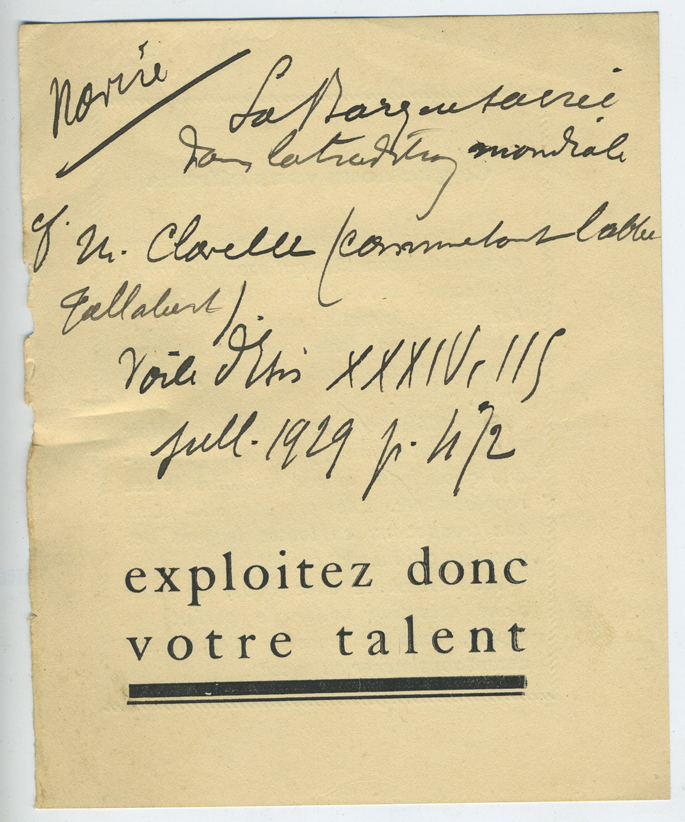 Navire
La Barque sacrée
dans la tradition mondiale
cf. M. Clavelle (commentant l'abbé
Jallabert).
Voile d'Isis XXXIV, 115
juill. 1929 p. 472
exploitez donc
votre talent